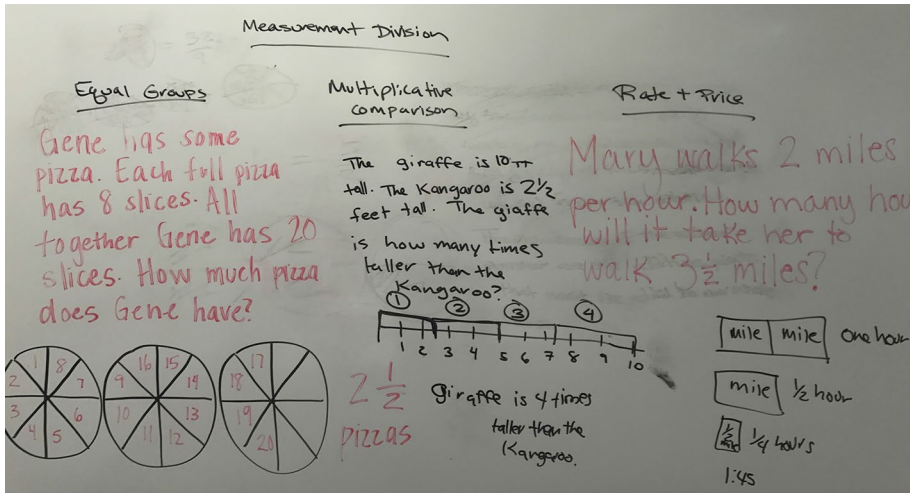 Measurement Division
Equal Groups
Gene has some
pizza. Each full pizza
has 8 slices. All
together Gene has 20
slices. How much pizza
does Gene have?
1 8
2 7
3 6
4 5
16 15
9 14
10 13
11 12
17
18
19
20
2 1/2
pizzas
Multiplicative
comparison
The giraffe is 10 ft
tall. The Kangaroo is 2 1/2
feet tall. The giaffe
is how many times
taller than the
Kangaroo?
① ② ③ ④
1 2 3 4 5 6 7 8 9 10
Giraffe is 4 times
taller than the
Kangaroo.
Rate + Price
Mary walks 2 miles
per hour. How many hou
will it take her to
walk 3 1/2 miles?
mile mile one hour
mile 1/2 hour
1/2 mile 1/4 hours
1:45